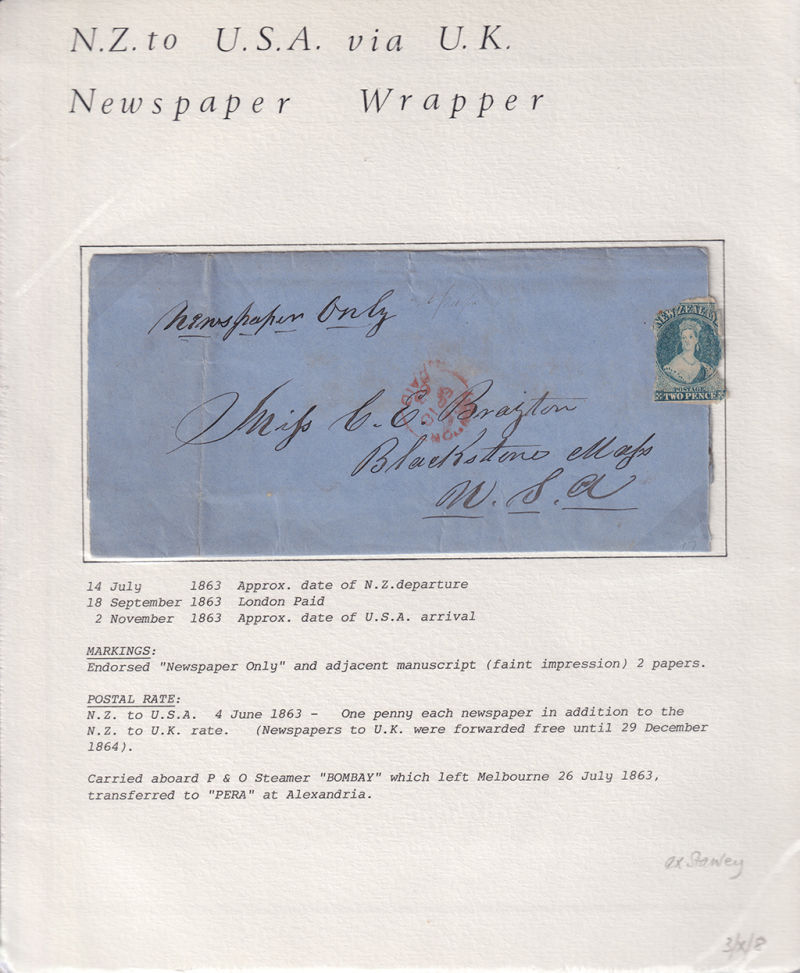 N.Z. to U.S.A. via U.K.
Newspaper Wrapper
Newspaper Only
NEW ZEALAND
POSTAGE
TWO PENCE
Miss C. E. Brayton
Blackstone Mass
U. S. A
14 July 1863 Approx. date of N.Z.departure
18 September 1863 London Paid
2 November 1863 Approx. date of U.S.A. arrival
MARKINGS:
Endorsed "Newspaper Only" and adjacent manuscript (faint impression) 2 papers.
POSTAL RATE:
N.Z. to U.S.A. 4 June 1863 - One penny each newspaper in addition to the
N.Z. to U.K. rate. (Newspapers to U.K. were forwarded free until 29 December
1864).
Carried aboard P & O Steamer "BOMBAY" which left Melbourne 26 July 1863,
transferred to "PERA" at Alexandria.
ex Stawey
3/x/8